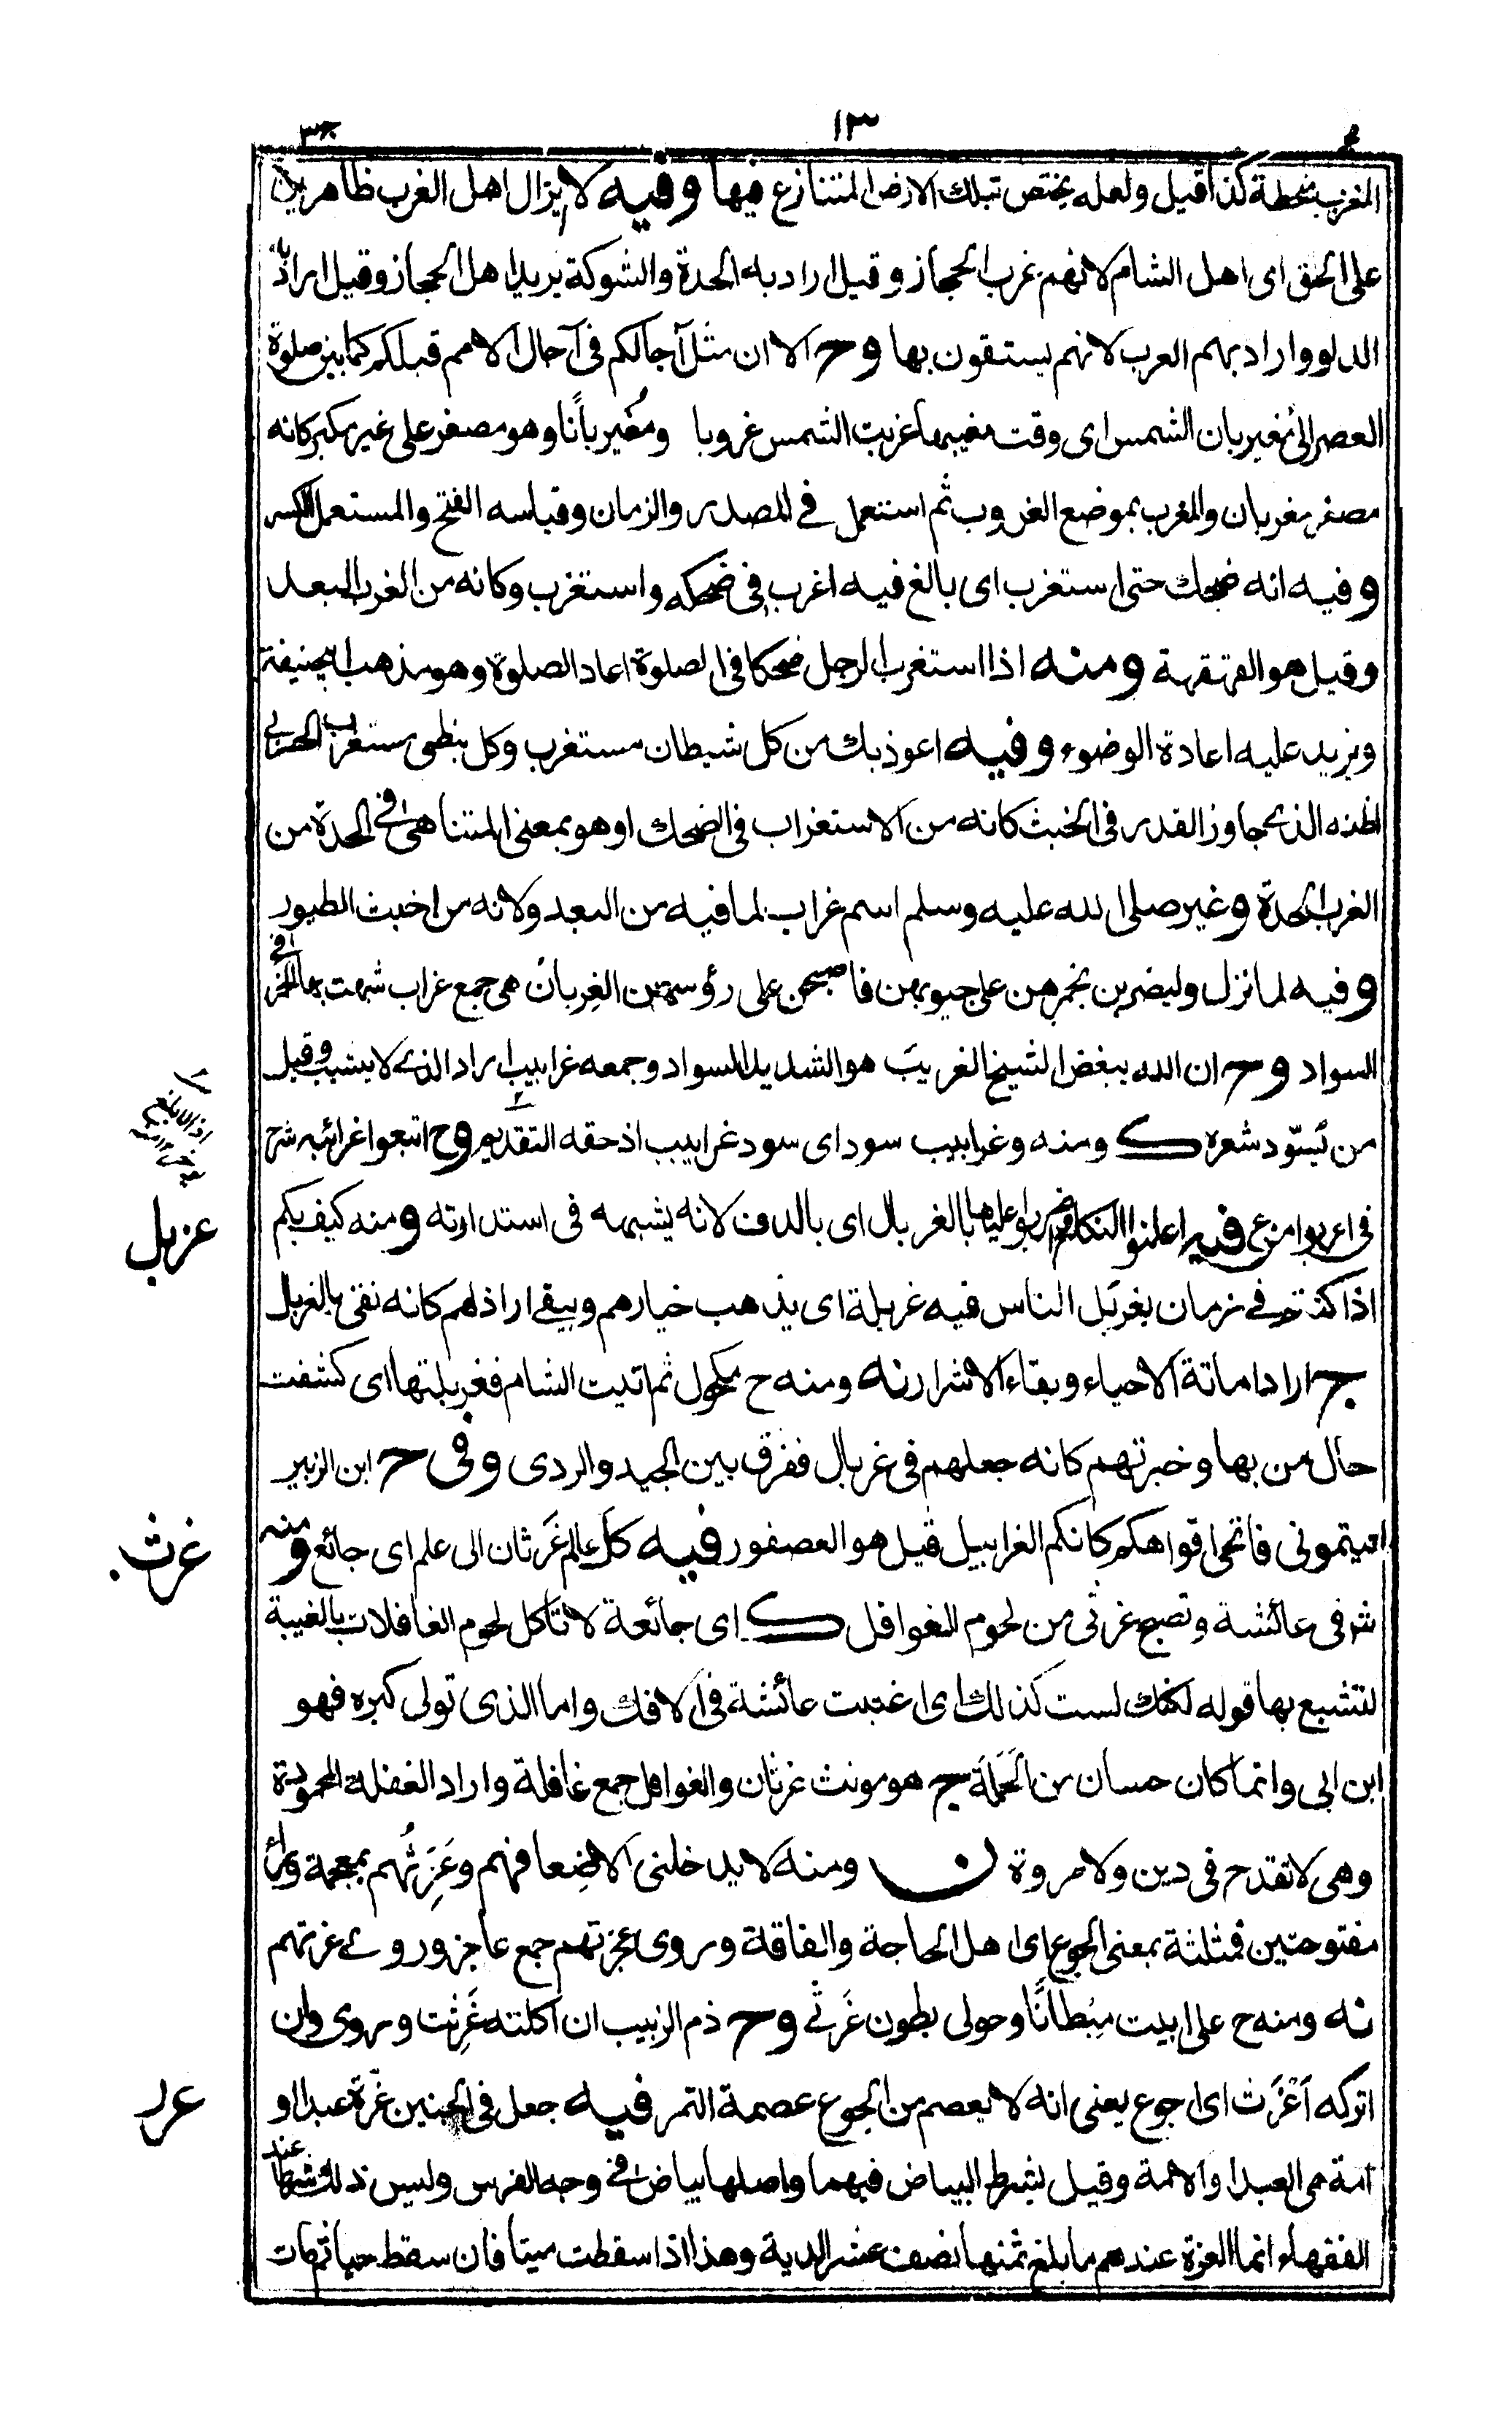 ١٣
المغرب بمحطة كذا قيل ولعله يختص بتلك الارض المتنازع فيها وفيه لا يزال اهل الغرب ظاهرين
على الحق اى اهل الشام لانهم غرب الحجاز وقيل اراد به الحدة والشوكة يريد اهل الجهاز وقيل اراد به
الدلو واراد بهم العرب لانهم يستقون بها وح الا ان مثل آجالكم فى آجال الامم قبلكم كما بين صلوة
العصر الى مُغيربان الشمس اى وقت مغيبها غربت الشمس غروبا ومُغيربانًا وهو مصغر على غير مكبر كانه
مصغر مغربان والمغرب بموضع الغروب ثم استعمل فى المصدر والزمان وقياسه الفتح والمستعمل الكسر
وفيه انه ضحك حتى استغرب اى بالغ فيه اغرب فى ضحكه واستغرب وكانه من الغرب البعد
وقيل هو القهقهة ومنه اذا استغرب الرجل ضحكا فى الصلوة اعاد الصلوة وهو مذهب ابيحنيفة
ويزيد عليه اعادة الوضوء وفيه اعوذ بك من كل شيطان مستغرب وكل نبطى مستعرب الحربى
اظنه الذى جاوز القدر فى الخبث كانه من الاستغراب فى الضحك او هو بمعنى المتناهى فى الحدة من
الغرب الحدة وغير صلى الله عليه وسلم اسم غراب لما فيه من البعد ولانه من اخبث الطيور
وفيه لما نزل وليضربن بخمرهن على جيوبهن فاصبحن على رؤسهن الغِربان هى جمع غراب شبهت بها الخمر فى
السواد وح ان الله يبغض الشيخ الغربيبَ هو الشديد السواد وجمعه غرابيب اراد الذى لا يشيب وقيل
من يُسوّد شعره ك ومنه وغرابيب سود اى سود غرابيب اذ حقه التقديم وح اتبعوا غرائبه شرح
فى اعربوا من ع فيه اعلنوا النكاح واضربوا عليها بالغربال اى بالدف لانه يشبهه فى استدارته ومنه كيف بكم
غربل
اذا كنتم فى زمان يغربَل الناس فيه غربلة اى يذهب خيارهم ويبقى اراذلهم كانه نقى بالغربال
ج اراد اماتة الاحياء وبقاء الاشرار نه ومنه ح مكحول ثم اتيت الشام فغربلتها اى كشفت
حال من بها وخبرتهم كانه جعلهم فى غربال ففرق بين الجيد والردى وفى ح ابن الزبير
اتيتمونى فاتحى افواهكم كانكم الغرابيل قيل هو العصفور فيه كل عالم غَرثان الى علم اى جائع ومنه
غرث
شعر فى عائشة وتصبح غرثى من لحوم الغوافل ك اى جائعة لا تاكل لحوم الغافلات بالغيبة
لتشبع بها قوله لكنك لست كذلك اى اغتبت عائشة فى الافك واما الذى تولى كبره فهو
ابن ابى وانما كان حسان من الحملة ج هو مونث غرثان والغوافل جمع غافلة واراد الغفلة المحمودة
وهى لا تقدح فى دين ولا مروة ن ومنه لا يدخلنى الا ضِعافهم وغَرَثُهم بمعجمة وراء
مفتوحتين فمثلثة بمعنى الجوع اى اهل الحاجة والفاقة وروى عجزتهم جمع عاجز وروى غرتهم
نه ومنه ح على ابيت مِبطانًا وحولى بطون غَرثى وح ذم الزبيب ان اكلته غَرِثت وروى وان
اتركه اَغْرَث اى اجوع يعنى انه لا يعصم من الجوع عصمة التمر فيه جعل فى الجنين غُرّة عبدا او
غرر
امة هى العبد او الامة وقيل بشرط البياض فيهما واصلها بياض فى وجه الفرس وليس ذلك شرطا عند
الفقهاء انما الغرة عندهم ما بلغ ثمنها نصف عشر الدية وهذا اذا سقطت ميتا فان سقط حيا ثم مات